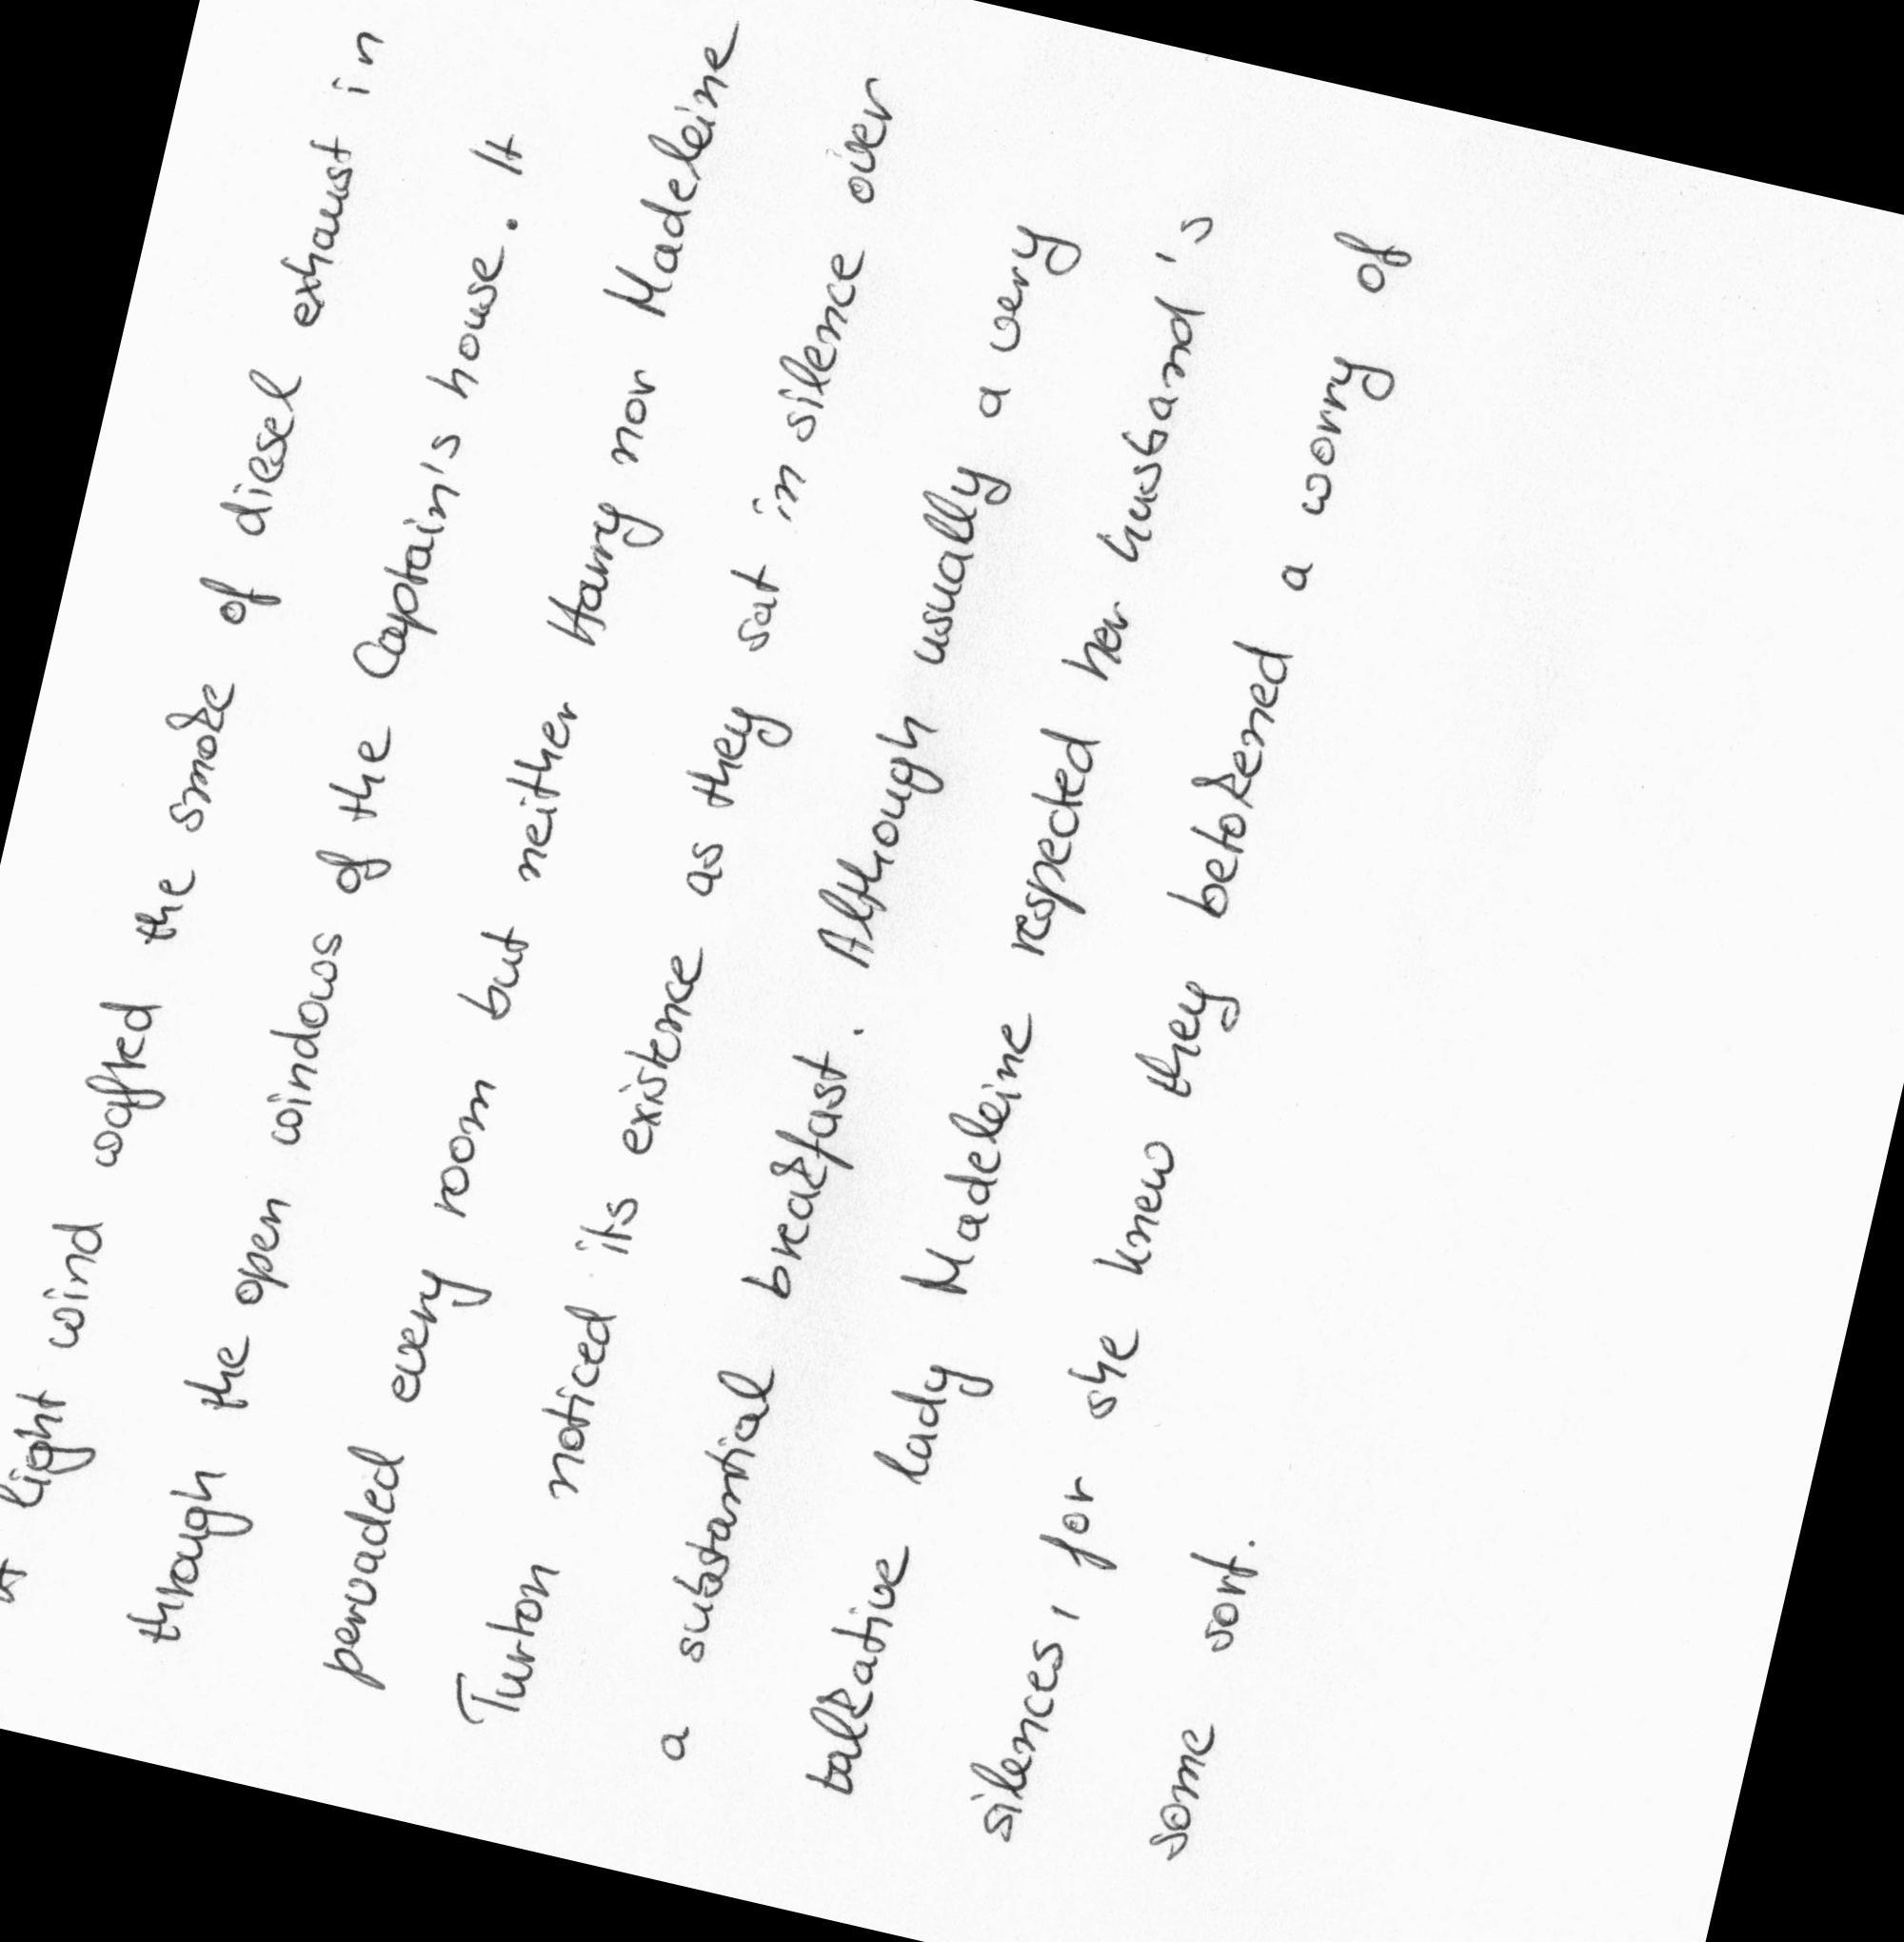 light wind wafted the smoke of diesel exhaust in
through the open windows of the Captain's house. It
pervaded every room but neither Harry nor Madeleine
Turton noticed its existence as they sat in silence over
a substantial breakfast. Although usually a very
talkative lady Madeleine respected her husband's
silences, for she knew they betokened a worry of
some sort.